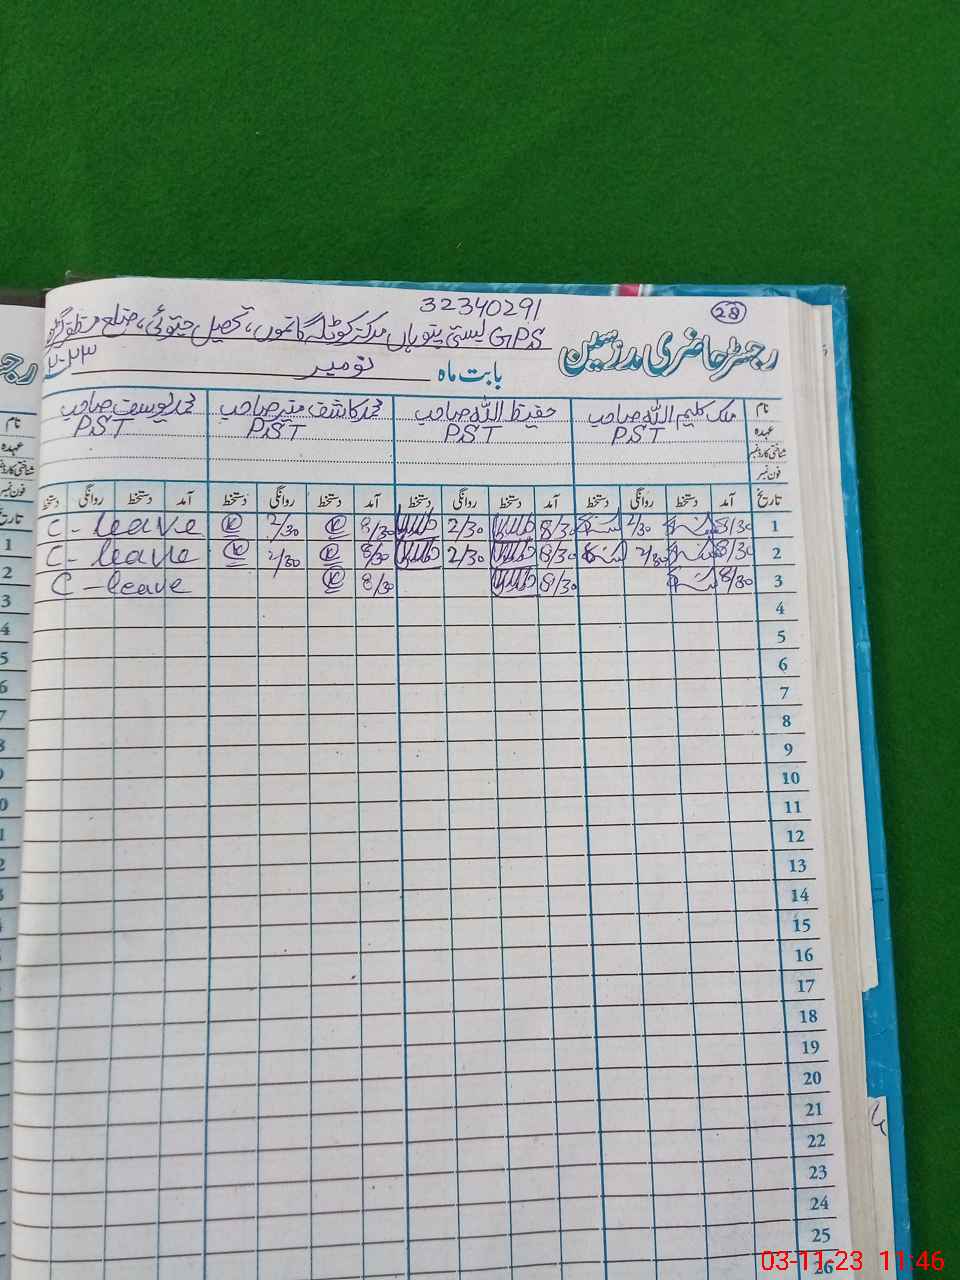 32340291
28
رجسٹر حاضری مدرسین GPS بستی پتوہاں مرکز کوٹلہ گاموں، تحصیل جتوئی، ضلع مظفرگڑھ
بابت ماہ نومبر ۲۰۲۳
نام ملک کلیم اللہ صاحب حفیظ اللہ صاحب محمد کاشف منیر صاحب محمد یوسف صاحب
عہدہ PST PST PST PST
شناختی کارڈ نمبر
فون نمبر
تاریخ آمد دستخط روانگی دستخط آمد دستخط روانگی دستخط آمد دستخط روانگی دستخط آمد دستخط روانگی دستخط
1 8/30 2/30 8/30 2/30 8/30 2/30 C-leave
2 8/30 2/30 8/30 2/30 8/30 2/30 C-leave
3 8/30 8/30 8/30 C-leave
4
5
6
7
8
9
10
11
12
13
14
15
16
17
18
19
20
21
22
23
24
25
26
03-11-23 11:46